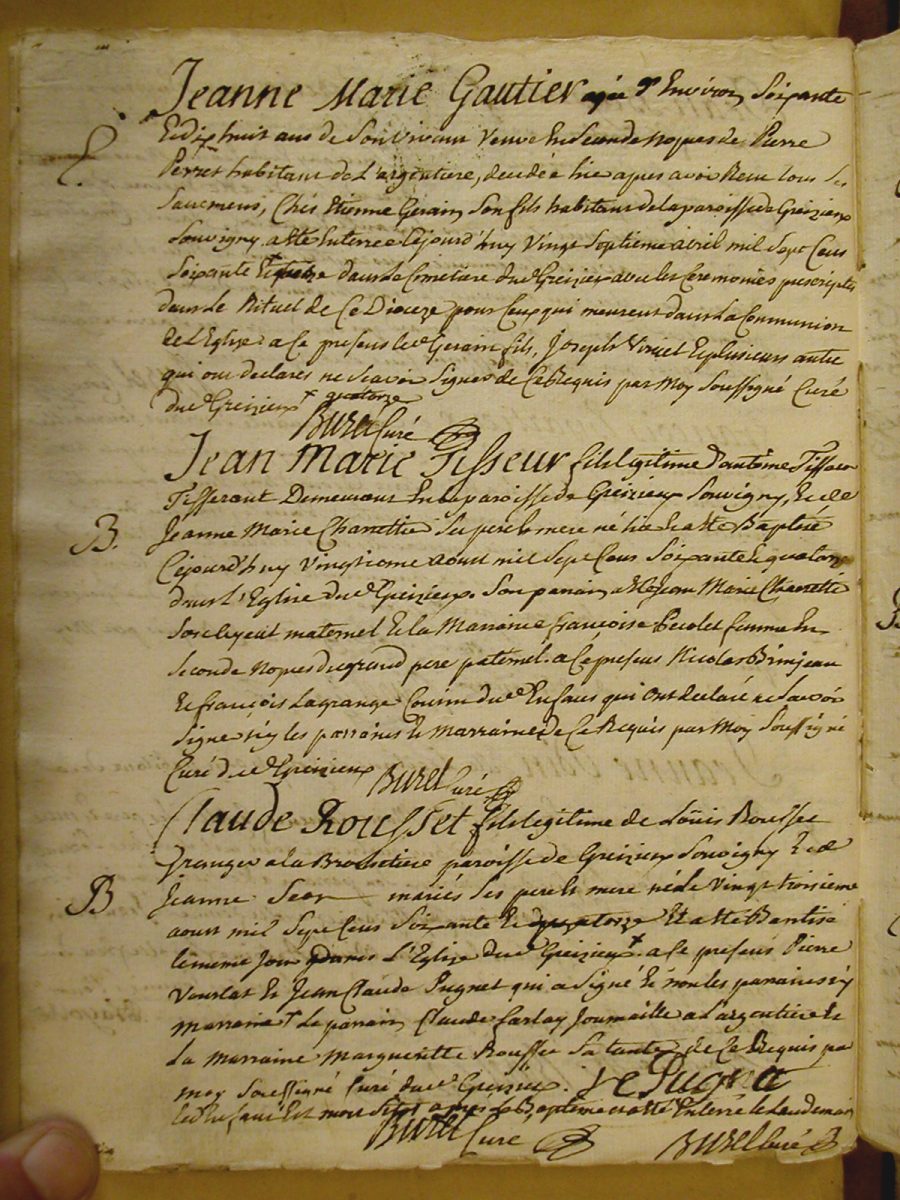 Jeanne Marie Gautier agée d'Environ Soixante
Et dix huit ans de Son Vivant Veuve En Seconde nopces de Pierre
E.
Perret habitant de L'argentiere, decedée hier apres avoir Receu tous Ses
Sacremens, Chés Etienne Gerain Son fils habitant de la paroisse de Greizieux
Souvigny a esté Enterrée Cejourd'huy Vingt Septieme avril mil Sept Cens
Soixante Et dans Le Cimetiere dud Greizieu avec les Ceremonies prescriptes
dans Le Rituel de Ce Dioceze pour Ceux qui meurent dans La Communion
de L'Eglise a Ce presens led Gerain fils, Joseph Et plusieurs autre
qui ont declarés ne Scavoir Signer de Ce Requis par Moy Soussigné Curé
dud Greizieux + quatorze
Burel Curé
Jean Marie Tisseur fils legitime d'antoine Tisseur
Tisserant Demeurant En la paroisse de Greizieux Souvigny, Et de
B.
Jeanne Marie Charretier Ses pere et mere né hier Et a esté Baptisé
Cejourd'huy Vingtieme aoust mil Sept Cens Soixante Et quatorze
dans L'Eglise dud Greizieux. Son parrain a Esté Jean Marie Charretier
Son ayeul maternel Et la Marraine françoise Pecolet femme En
Seconde Nopces du grand pere paternel. a Ce presens Nicolas
Et françois Lagrange Cousins dud Enfans qui Ont declaré ne Scavoir
Signer n'y les parrains Et Marraine de Ce Requis par Moy Soussigné
Curé dud Greizieux Burel Curé
Claude Rousset fils legitime de Louis Rousset
Granger a la paroisse de Greizieux Souvigny Et de
B
Jeanne mariés Ses pere et mere né le Vingt troisieme
aoust mil Sept Cens Soixante Et quatorze Et a esté Baptisé
le meme Jour dans L'Eglise dud Greizieux + a Ce presens Pierre
Et Jean Claude Pugnet qui a Signé Et non les parrains n'y
Marraine + Le parrain Claude a L'argentiere Et
La Marraine Marguerite Rousset Sa tante de Ce Requis par
moy Soussigné Curé dud Greizieu.
led Enfant Est mort Sitot apres Le Bapteme Et a esté Enterré le Landemain
Burel Curé Burel Curé